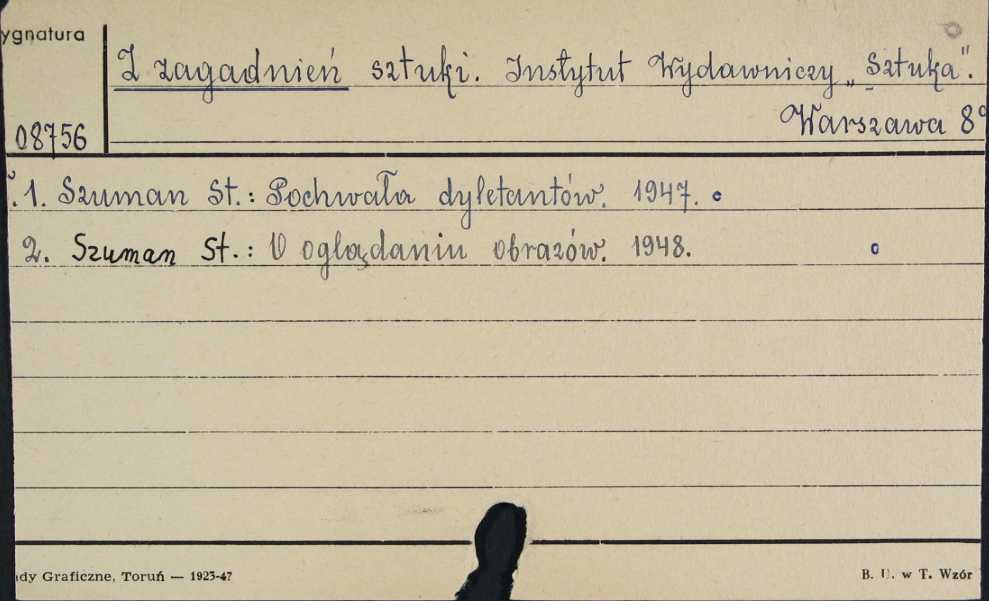 ygnatura
Z zagadnień sztuki. Instytut Wydawniczy „Sztuka".
08756
Warszawa 8°
1. Szuman St.: Pochwała dyletantów. 1947.
2. Szuman St.: O oglądaniu obrazów. 1948.
dy Graficzne, Toruń — 1923-47
B. U. w T. Wzór